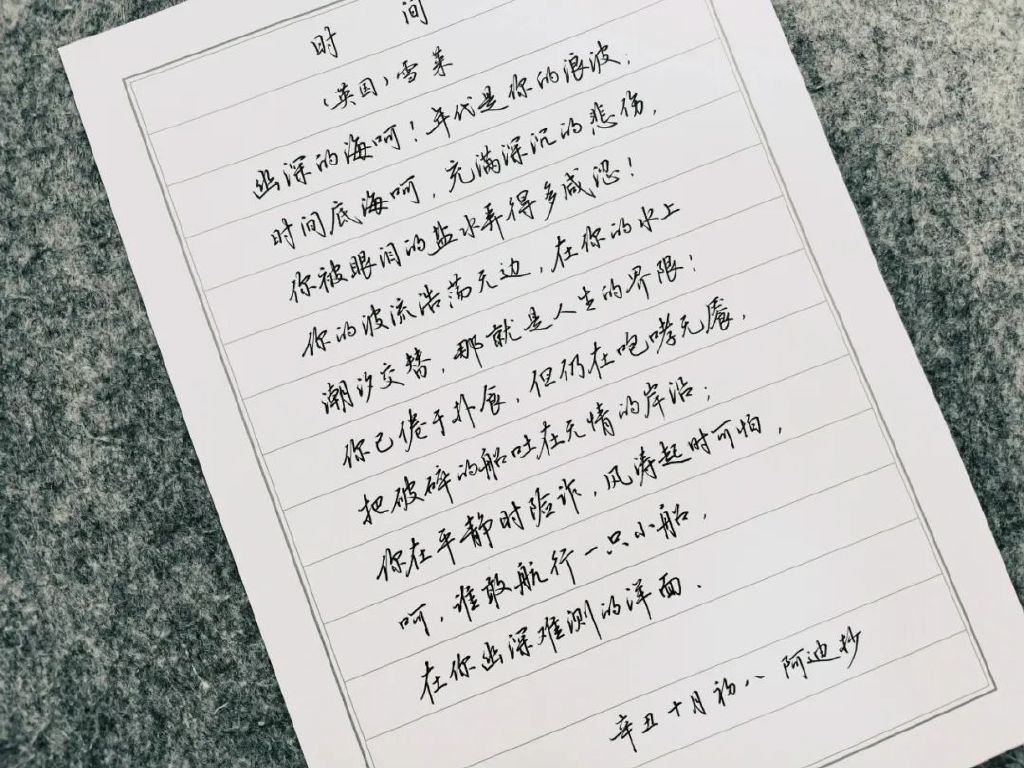 时 间
（英国）雪莱
幽深的海呵！年代是你的浪波；
时间底海呵，充满深沉的悲伤，
你被眼泪的盐水弄得多咸涩！
你的波流浩荡无边，在你的水上
潮汐交替，那就是人生的界限！
你已倦于扑食，但仍在咆哮无餍，
把破碎的船吐在无情的岸沿；
你在平静时险诈，风涛起时可怕，
呵，谁敢航行一只小船，
在你幽深难测的洋面．
辛丑十月初八 阿迪抄